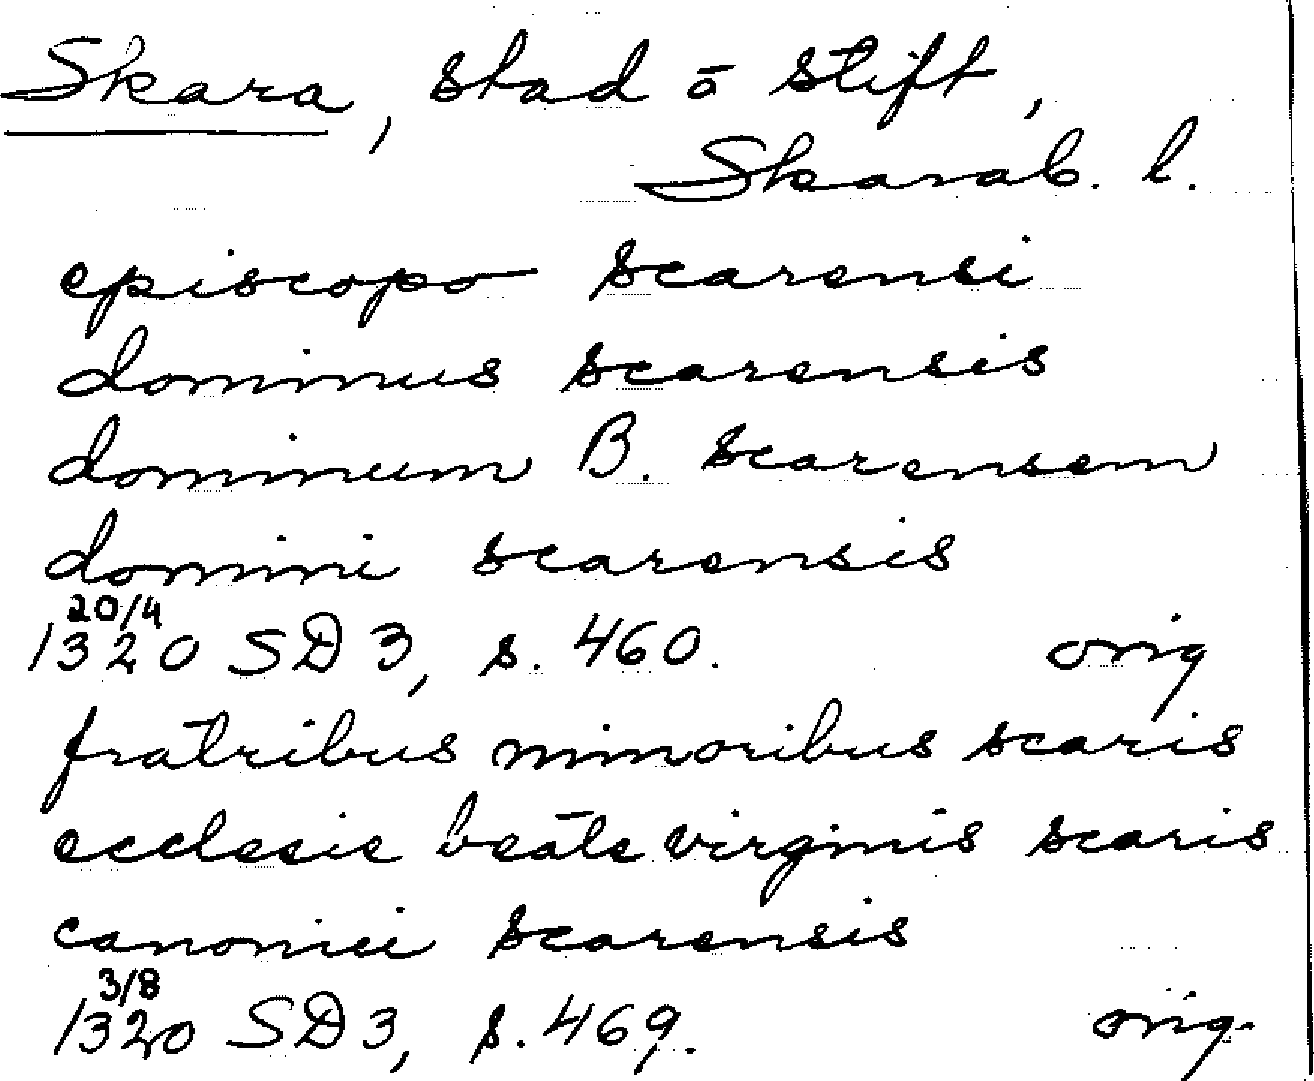 Skara, stad o stift,
Skarab. l.
episcopo scarensi
dominus scarensis
dominum B. scarensem
domini scarensis
20/4
1320 SD 3, s. 460. orig
fratribus minoribus scaris
ecclesie beate virginis scaris
canonici scarensis
3/8
1320 SD 3, s. 469. orig.